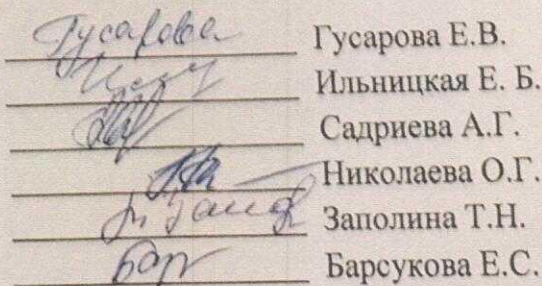 Гусарова Гусарова Е.В.
Ильницкая Е. Б.
Садриева А.Г.
Николаева О.Г.
Заполина Т.Н.
Барсукова Е.С.